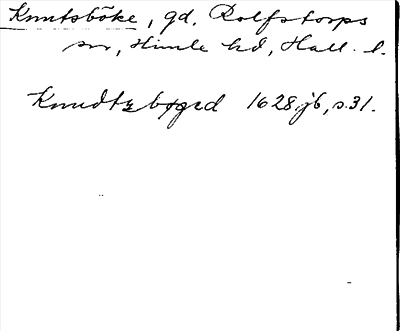 Knutsböke, gd. Rolfstorps
sn, Himle hd, Hall. l.
Knudtzbøged 1628 jb, s. 31.